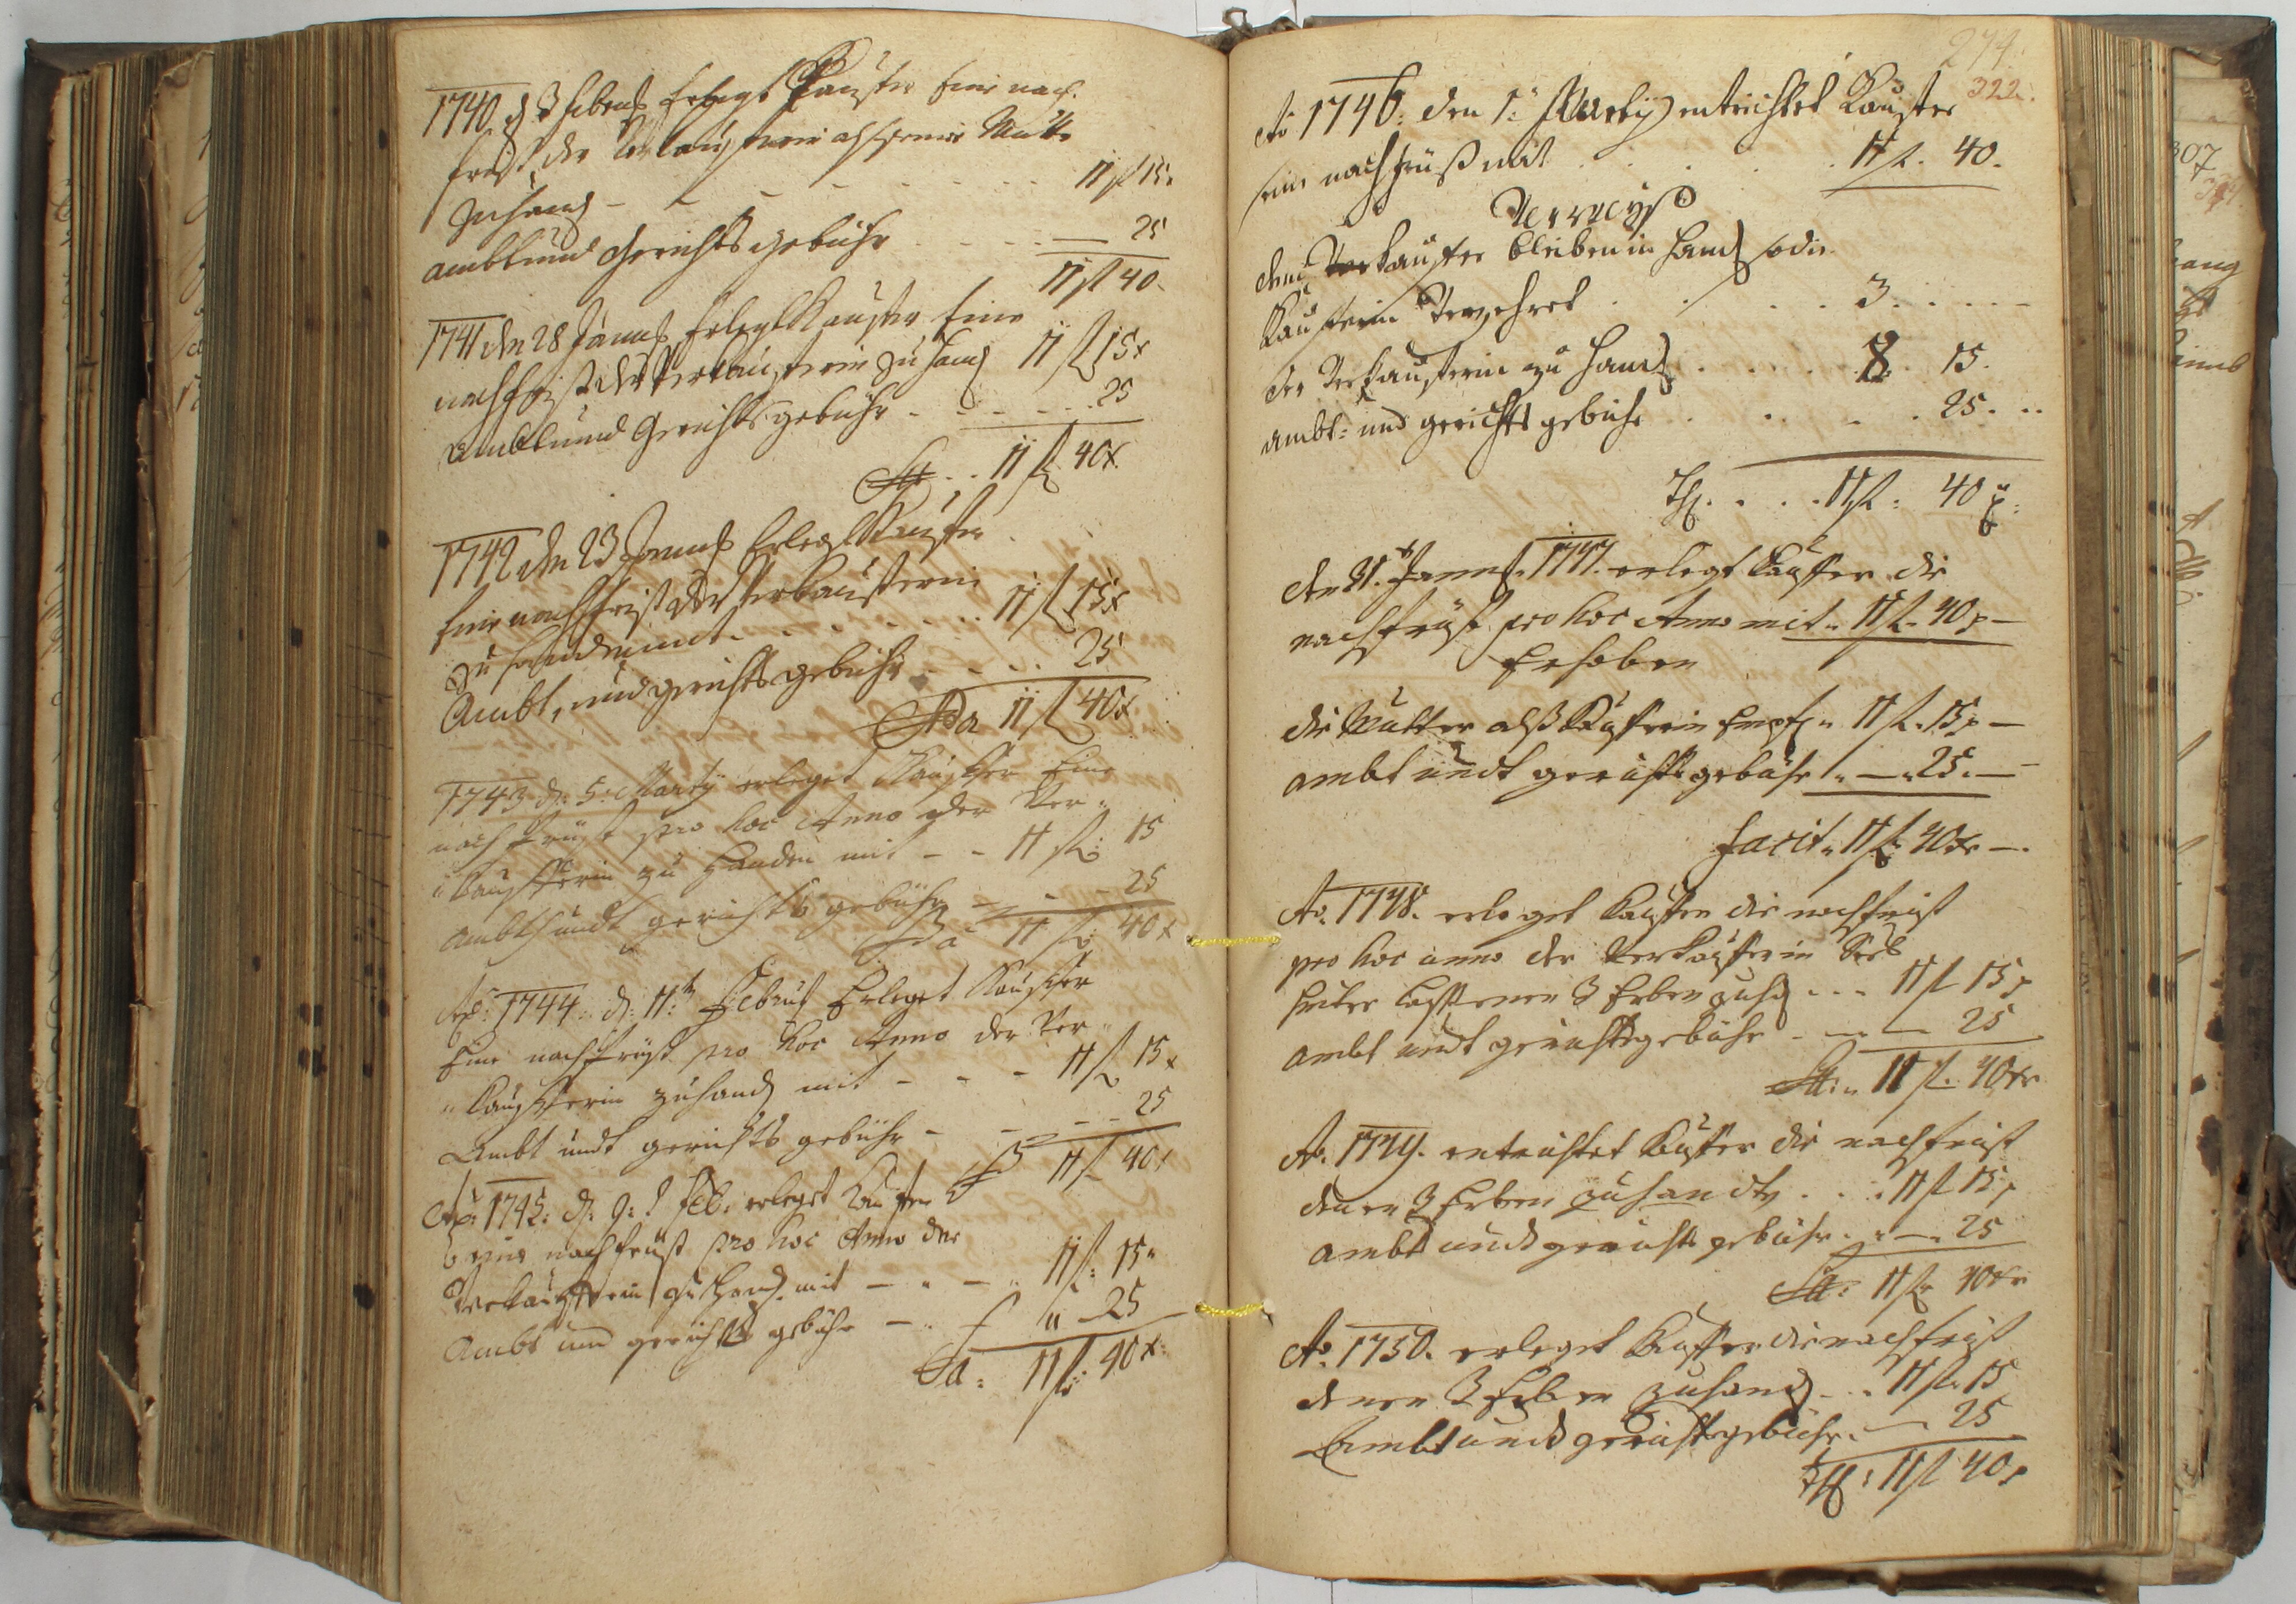 1740 d 3 Febr: Erlegt Kauffer seine nach
frist der Verkaufferin alß seiner Mutter
zu hand - - - - 11 fl 15
ambt und Gerichts gebühr - - - 25
11 fl 40
1741 den 28 Januar: Erlegt Kauffer seine
nachfrist der Verkaufferin zu hand 11 fl 15 x
Ambt und Gerichts gebühr - - - 25
11 fl 40 x
1742 den 23 Januar: Erlegt Kauffer
seine nachfrist der Verkaufferin
zu handen mit - - - 11 fl 15 x
Ambt, und gerichts gebühr - - - 25
Sa 11 fl 40 x
1743 d: 5: Marty erleget Kauffer seine
nachfrüst pro hoc Anno der Ver-
kaufferin zu Handen mit - - 11 fl: 15
ambts undt gerichts gebühr - - - 25
Sa 11 fl: 40 x
Ao: 1744: d: 11t: Februar Erleget Kauffer
seine nachfrüst pro hoc Anno der Ver-
"kaufferin zuhand mit - - - 11 fl 15 x
Ambt undt gerichts gebühr - - - 25
11 fl 40 x
Ao: 1745: d: 9: Feb: erleget Kauffer
seine nachfrüst pro hoc Anno der
Verkaufferin zu Hand mit - " - " 11 fl: 15 "
Ambt und gerichts gebühr - . " 25
Sa: 11 fl: 40 x:
274.
322.
Ao 1746: den 1: Marty entrichtet Kauffer
seine nachfrüst mit . . . . 11 fl. 40.
dem Verkauffer bleiben in hand so die
Kaufferin Verzehret . . . . 3. . . .
der Verkaufferin zu hand . . . . 8. 15.
ambt- und gerichts gebühr . . . . 25. ..
. . . 11 fl: 40 x:
den 31t Januar: 1747. erlegt Kauffer die
nachfrüst pro hoc Anno mit " 11 fl. 40 x -
Erhoben
die Mutter alß Kaufferin Empf: " 11 fl. 15 x -
ambt undt gerichts gebühr " - " 25. -
facit " 11 fl: 40 xr -.
Ao. 1748. erleget Kauffer die nachfrist
pro hoc anno der Verkaufferin Seel:
hinter laßenen 3 Erben zu hd . . . 11 fl 15 x
ambt undt gerichtsgebühr - - - 25
" 11 fl. 40 xr
Ao. 1749. entrichtet Kauffer die nachfrist
denen 3 Erben zuhanden . . . 11 fl 15 x
ambt und gerichts gebühr . " - " 25
: 11 fl 40 xr
Ao. 1750. erleget Kauffer die nachfrist
denen 3 Erben zuhand - . . 11 fl. 15
Ambt und gerichtsgebühr . - 25
: 11 fl 40 x
307